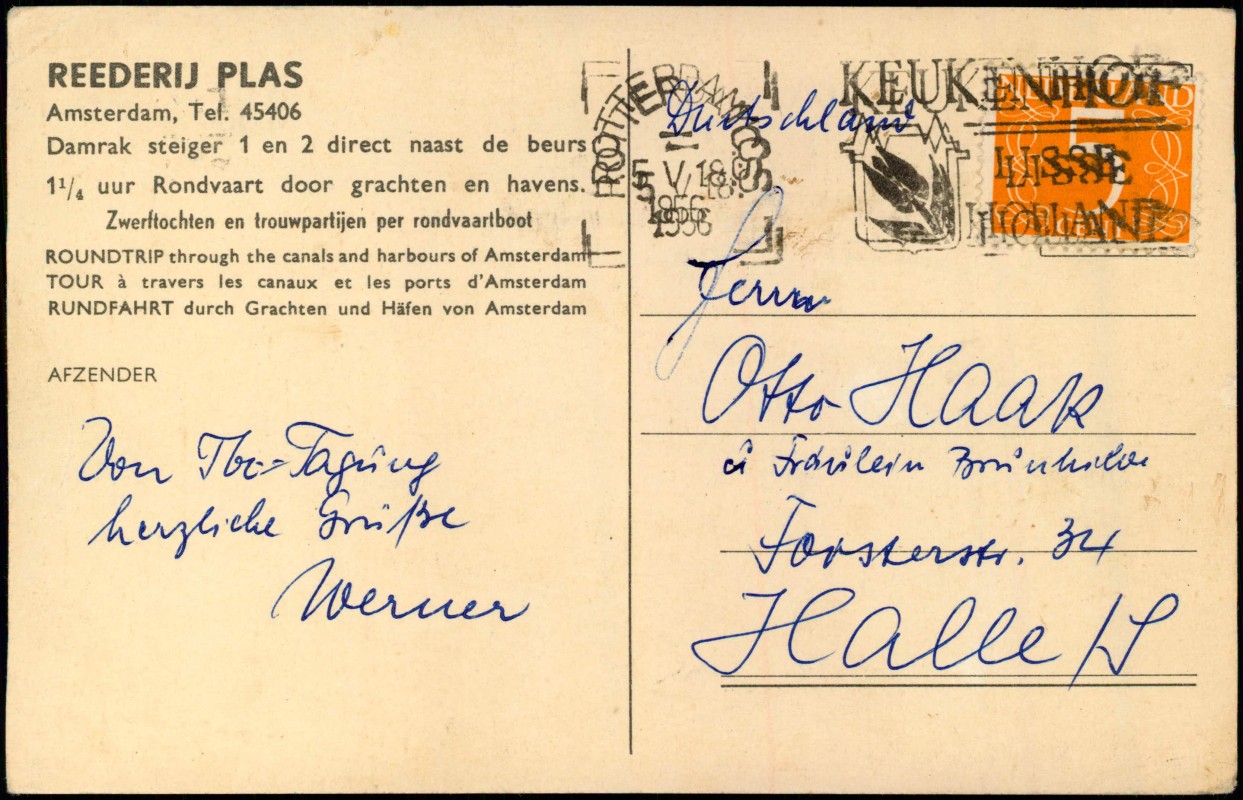 REEDERIJ PLAS
Amsterdam, Tel. 45406
Damrak steiger 1 en 2 direct naast de beurs
1¹/₄ uur Rondvaart door grachten en havens.
Zwerftochten en trouwpartijen per rondvaartboot
ROUNDTRIP through the canals and harbours of Amsterdam
TOUR à travers les canaux et les ports d'Amsterdam
RUNDFAHRT durch Grachten und Häfen von Amsterdam
AFZENDER
Von Tbc-Tagung
herzliche Grüße
Werner
ROTTERDAM CS
5 V 18
1956
KEUKENHOF
LISSE
HOLLAND
5
Deutschland
Herrn
Otto Haak
u Fräulein Brünhilde
Forsterstr. 34
Halle/S